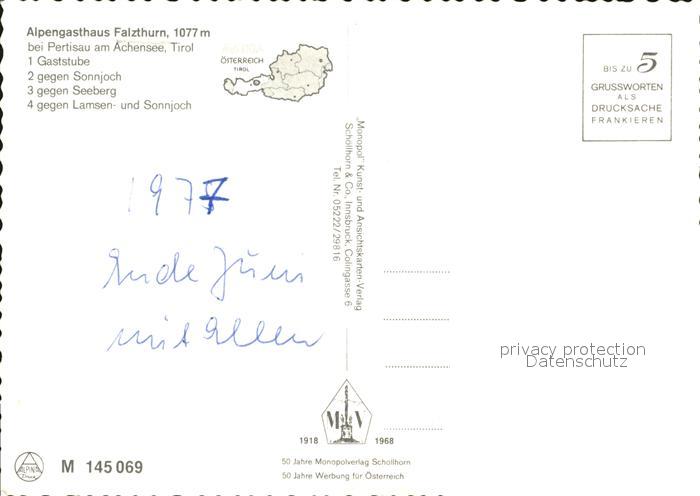 Alpengasthaus Falzthurn, 1077 m
bei Pertisau am Achensee, Tirol
1 Gaststube
2 gegen Sonnjoch
3 gegen Seeberg
4 gegen Lamsen- und Sonnjoch
ÖSTERREICH
TIROL
BIS ZU 5
GRUSSWORTEN
ALS
DRUCKSACHE
FRANKIEREN
„Monopol" Kunst- und Ansichtskarten-Verlag
Schöllhorn & Co., Innsbruck, Colingasse 6
Tel. Nr. 05222/29816
1977
Ende Juni
mit Ellen
privacy protection
Datenschutz
M V
1918 1968
50 Jahre Monopolverlag Schöllhorn
50 Jahre Werbung für Österreich
ALPINA
Druck
M 145 069